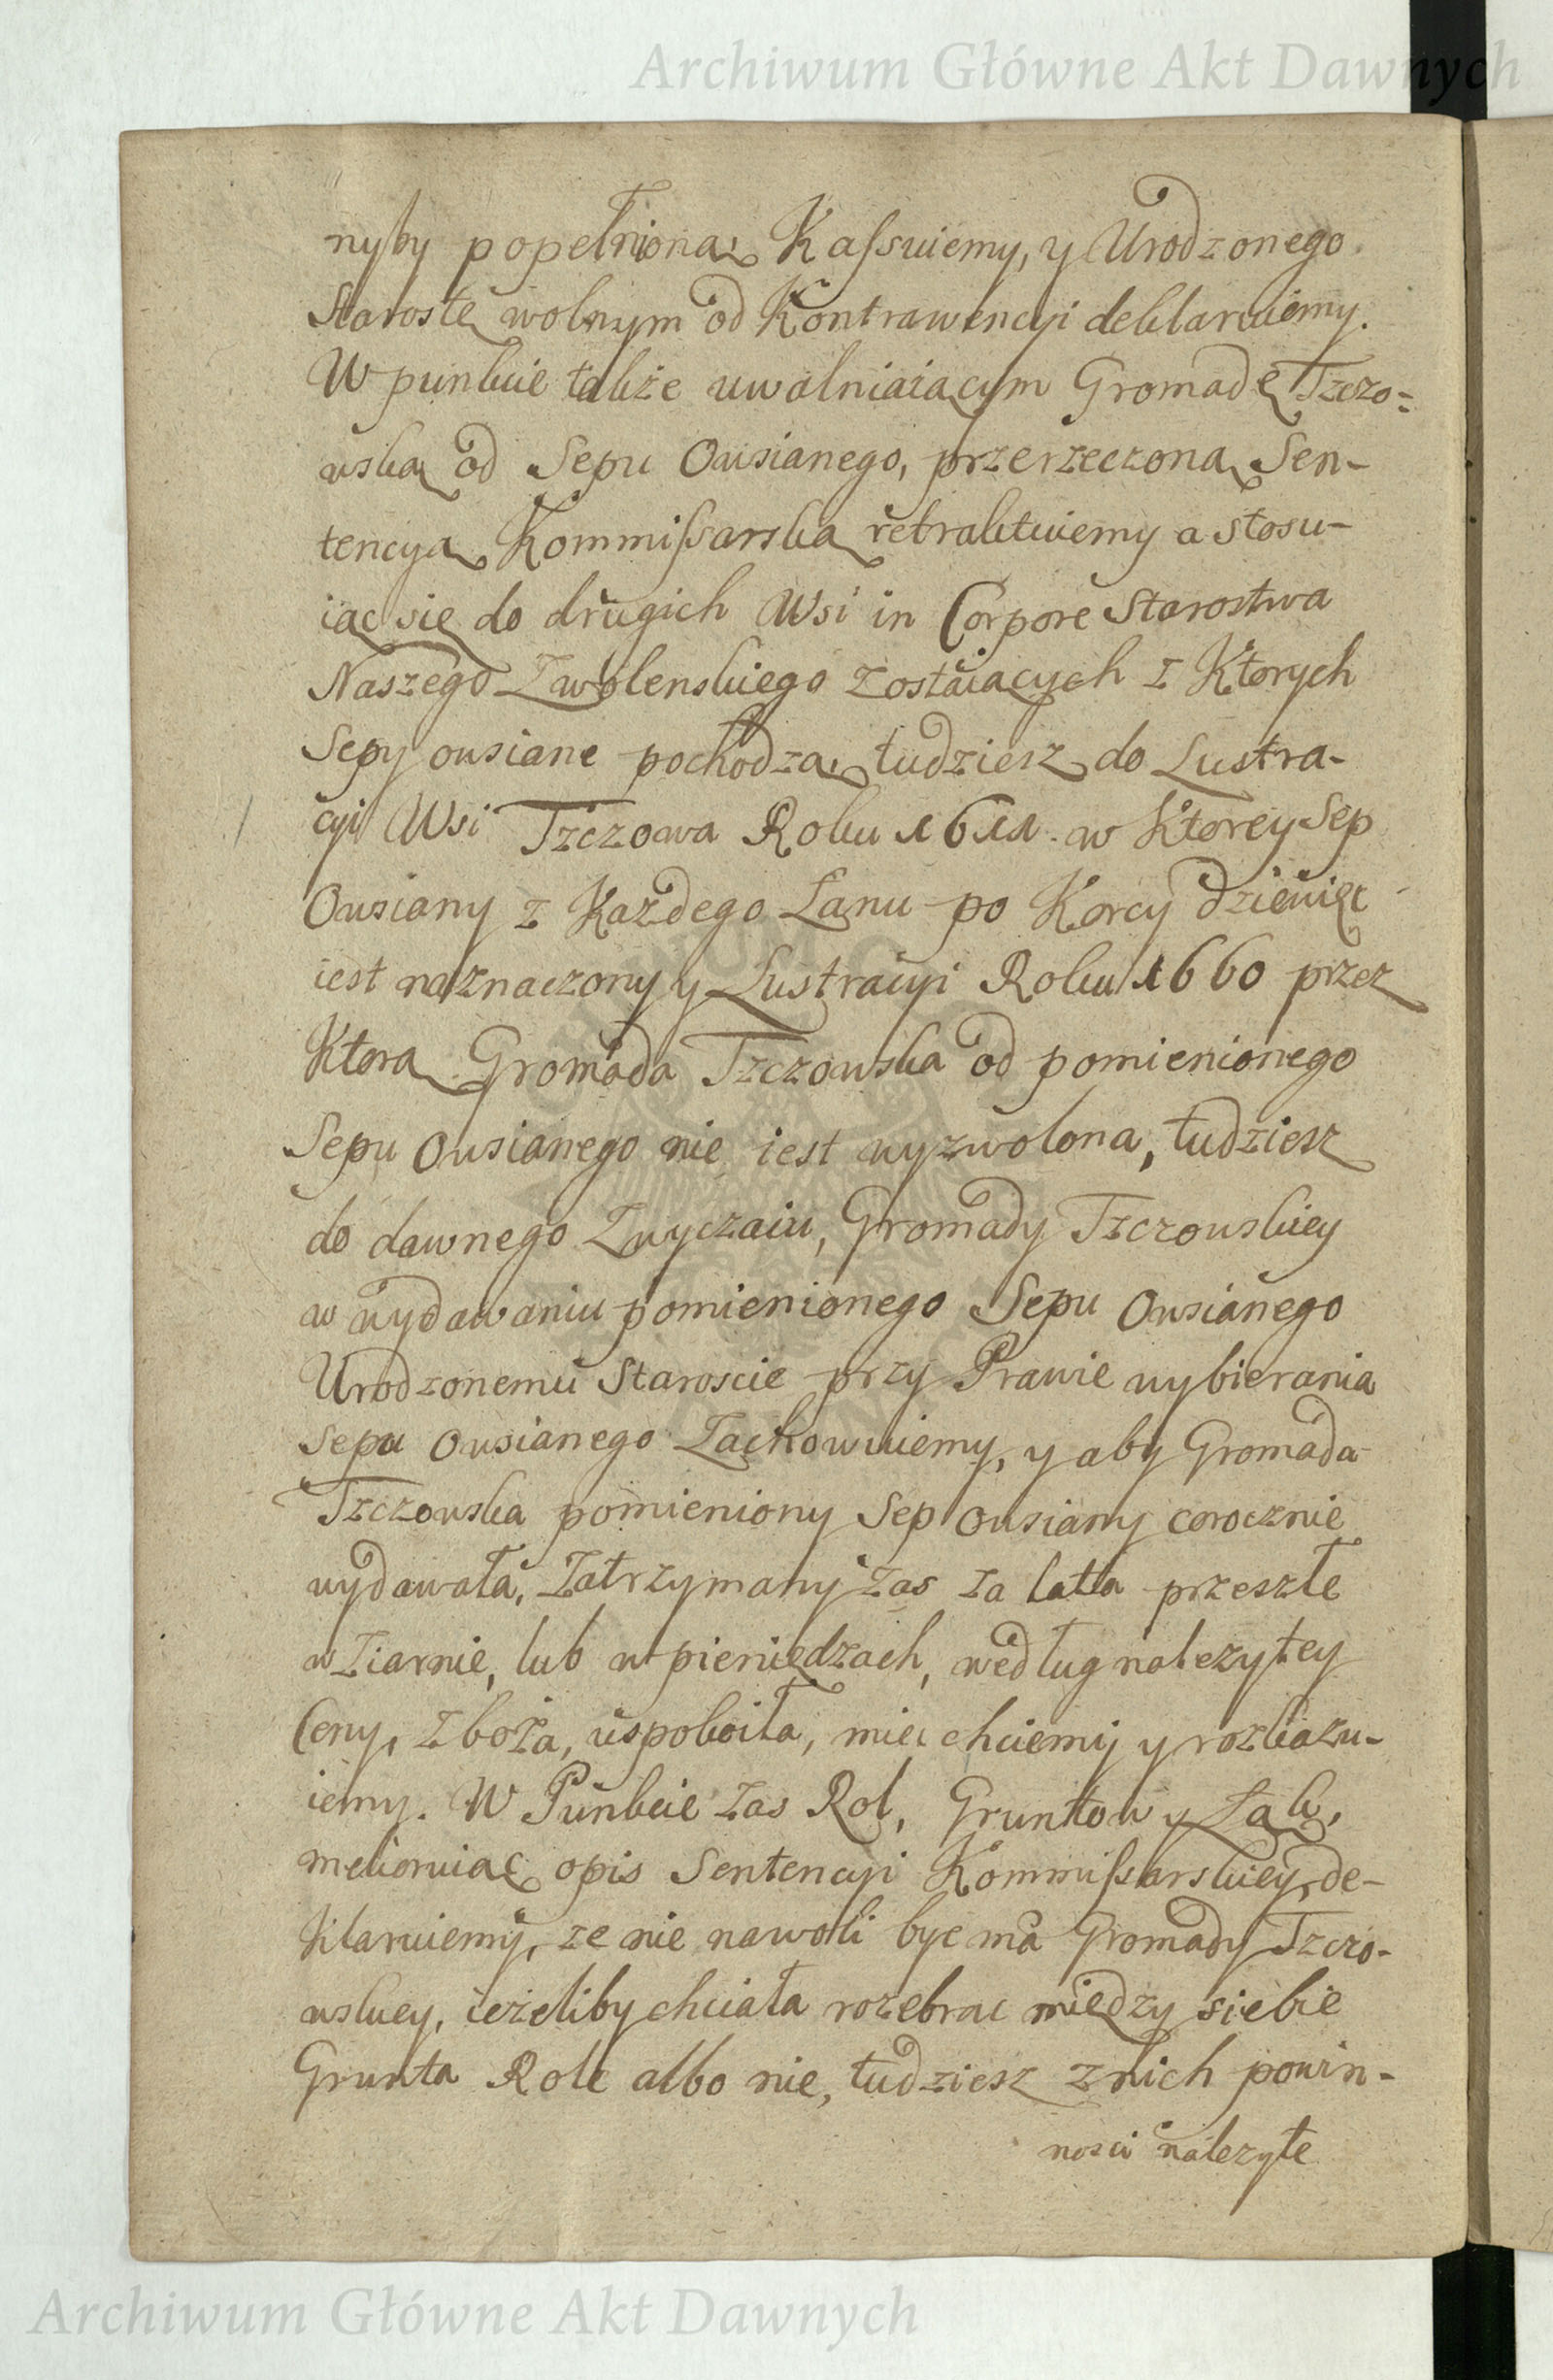 Archiwum Główne Akt Dawnych
nyby popełnioną Kassuiemy, y Urodzonego
Starostę wolnym od Kontrawencyi deklaruiemy.
W punkcie także uwalniaiącym Gromadę Tzczo=
wską od Sepu Owsianego, przerzeczoną Sen-
tencyą Kommissarską retraktuiemy a stosu-
iąc się do drugich Wsi in Corpore Starostwa
Naszego Zwolenskiego zostaiących z Ktorych
Sepy owsiane pochodzą, tudziesz do Lustra-
cyi Wsi Tzczowa Roku 1611. w Ktorey Sep
Owsiany z Każdego Łanu po Korcy dziewięc
iest naznaczony y Lustracyi Roku 1660 przez
Ktorą Gromada Tzczowska od pomienionego
Sepu Owsianego nie iest wyzwolona, tudziesz
do dawnego Zwyczaiu, Gromady Tzczowskiey
w wydawaniu pomienionego Sepu Owsianego
Urodzonemu Staroscie przy Prawie wybierania
Sepu Owsianego Zachowuiemy, y aby Gromada
Tzczowska pomieniony Sep Owsiany corocznie
wydawała, Zatrzymany zas za lata przeszłe
w Ziarnie, lub w pieniędzach, według nalezytey
Ceny, Zboża, uspokoiła, miec chcemy y rozkazu-
iemy. W Punkcie zas Rol, Gruntow y Łąk,
melioruiąc opis Sentencyi Kommissarskiey, de-
klaruiemy, ze nie nawoli byc ma Gromady Tzczo-
wskiey, ieżeliby chciała rozebrac między siebie
Grunta Role albo nie, tudziesz z nich powin-
nosci nalezyte
Archiwum Główne Akt Dawnych